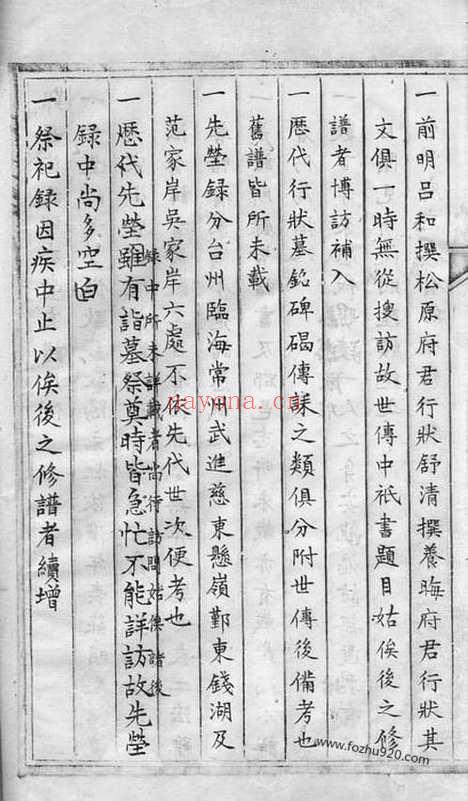 一前明呂和撰松原府君行狀舒清撰養晦府君行狀其
文俱一時無從搜訪故世傳中祇書題目姑俟後之修
譜者博訪補入
一歷代行狀墓銘碑碣傳誄之類俱分附世傳後備考也
舊譜皆所未載
一先塋錄分台州臨海常州武進慈東懸嶺鄞東錢湖及
范家岸吳家岸六處不依先代世次便考也
錄中所未詳載者尚行訪問姑俟諸後
一歷代先塋雖有詣墓祭奠時皆急忙不能詳訪故先塋
錄中尚多空白
一祭祀錄因疾中止以俟後之修譜者續增
nayona.cn
www.fozhu920.com